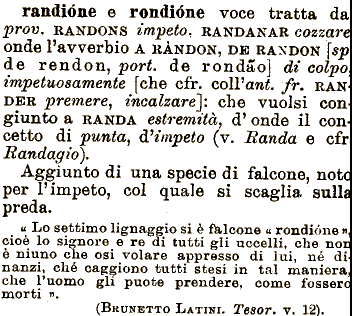 randióne e rondióne voce tratta da
prov. RANDONS impeto, RANDANAR cozzare
onde l'avverbio A RÀNDON, DE RANDON [sp
de rendon, port. de rondão] di colpo,
impetuosamente [che cfr. coll'ant. fr. RAN-
DER premere, incalzare]: che vuolsi con-
giunto a RANDA estremità, d'onde il con-
cetto di punta, d'impeto (v. Randa e cfr
Randagio).
Aggiunto di una specie di falcone, noto
per l'impeto, col quale si scaglia sulla
preda.
« Lo settimo lignaggio si è falcone « rondióne »,
cioè lo signore e re di tutti gli uccelli, che non
è niuno che osi volare appresso di lui, né di-
nanzi, ché caggiono tutti stesi in tal maniera,
che l'uomo gli puote prendere, come fossero
morti ».
(BRUNETTO LATINI. Tesor. v. 12).